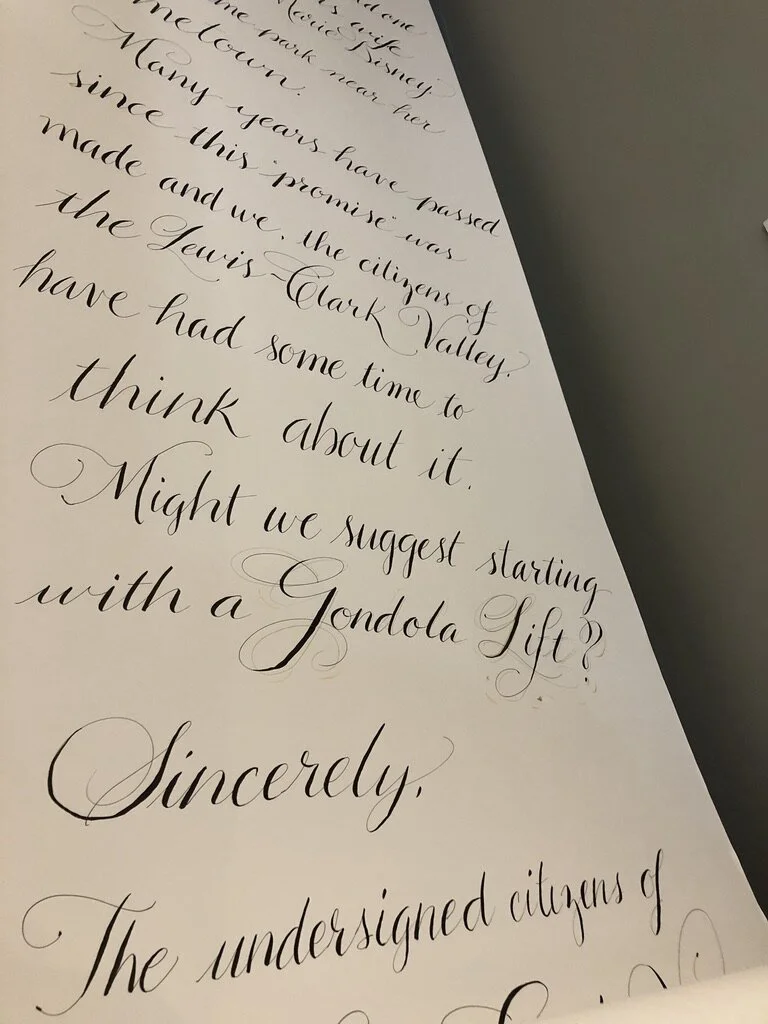 's wife
Marie Disney
park near her
Many years have passed
since this "promise" was
made and we, the citizens of
the Lewis-Clark Valley,
have had some time to
think about it.
Might we suggest starting
with a Gondola Lift?
Sincerely,
The undersigned citizens of